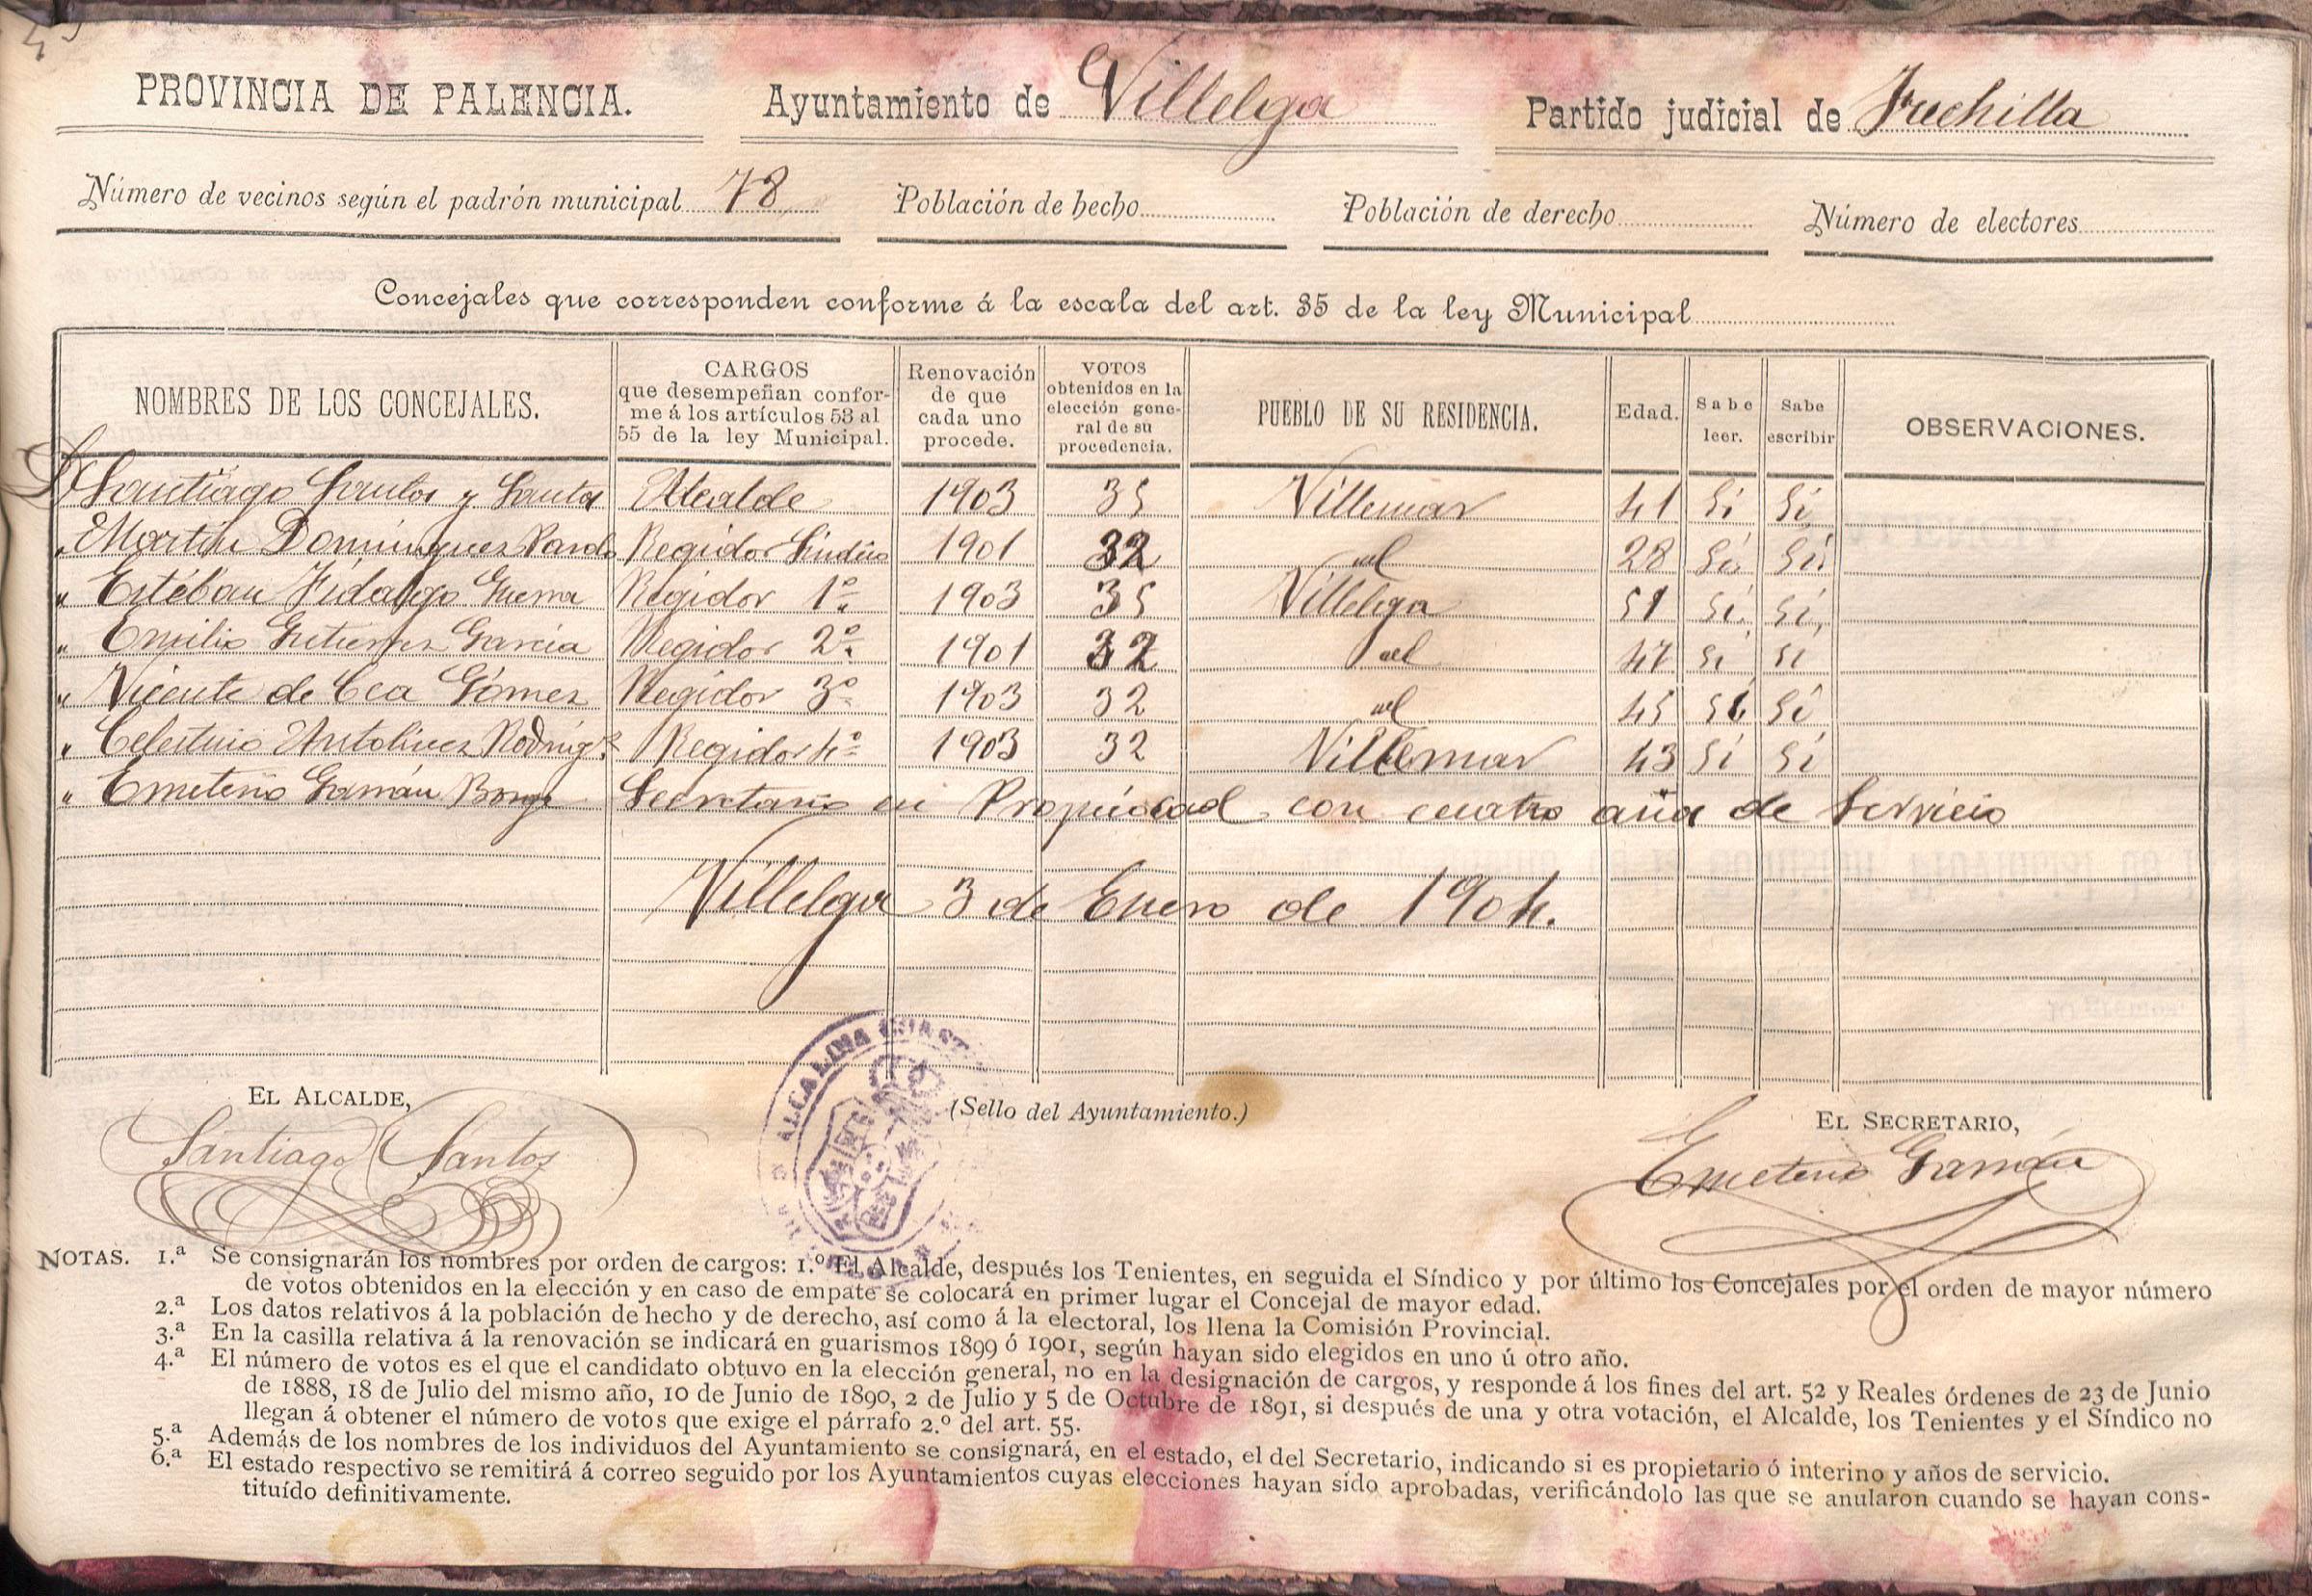 PROVINCIA DE PALENCIA. Ayuntamiento de Villelga Partido judicial de Frechilla
Número de vecinos según el padrón municipal 78 Población de hecho Población de derecho Número de electores
Concejales que corresponden conforme á la escala del art. 35 de la ley Municipal
NOMBRES DE LOS CONCEJALES. CARGOS que desempeñan confor- me á los artículos 53 al 55 de la ley Municipal. Renovación de que cada uno procede. VOTOS obtenidos en la elección gene- ral de su procedencia. PUEBLO DE SU RESIDENCIA. Edad. Sabe leer. Sabe escribir OBSERVACIONES.
D. Santiago Santos y Santos Alcalde 1903 35 Villemar 41 Sí Sí
" Martín Domínguez Pardo Regidor Síndico 1901 32 id 28 Sí Sí
" Estéban Fidalgo Guerra Regidor 1º 1903 35 Villelga 51 Sí Sí
" Emilio Gutierrez García Regidor 2º 1901 32 id 47 Sí Sí
" Vicente de Cea Gómez Regidor 3º 1903 32 id 45 Sí Sí
" Celestino Antolínez Rodrigz Regidor 4º 1903 32 Villemar 43 Sí Sí
" Emeterio Garrán Borge Secretario en Propiedad con cuatro años de Servicio
Villelga 3 de Enero de 1904.
ALCALDIA CONST
EL ALCALDE, (Sello del Ayuntamiento.) EL SECRETARIO,
Santiago Santos Emeterio Garrán
NOTAS. 1.ª Se consignarán los nombres por orden de cargos: 1.º El Alcalde, después los Tenientes, en seguida el Síndico y por último los Concejales por el orden de mayor número
de votos obtenidos en la elección y en caso de empate se colocará en primer lugar el Concejal de mayor edad.
2.ª Los datos relativos á la población de hecho y de derecho, así como á la electoral, los llena la Comisión Provincial.
3.ª En la casilla relativa á la renovación se indicará en guarismos 1899 ó 1901, según hayan sido elegidos en uno ú otro año.
4.ª El número de votos es el que el candidato obtuvo en la elección general, no en la designación de cargos, y responde á los fines del art. 52 y Reales órdenes de 23 de Junio
de 1888, 18 de Julio del mismo año, 10 de Junio de 1890, 2 de Julio y 5 de Octubre de 1891, si después de una y otra votación, el Alcalde, los Tenientes y el Síndico no
llegan á obtener el número de votos que exige el párrafo 2.º del art. 55.
5.ª Además de los nombres de los individuos del Ayuntamiento se consignará, en el estado, el del Secretario, indicando si es propietario ó interino y años de servicio.
6.ª El estado respectivo se remitirá á correo seguido por los Ayuntamientos cuyas elecciones hayan sido aprobadas, verificándolo las que se anularon cuando se hayan cons-
tituído definitivamente.